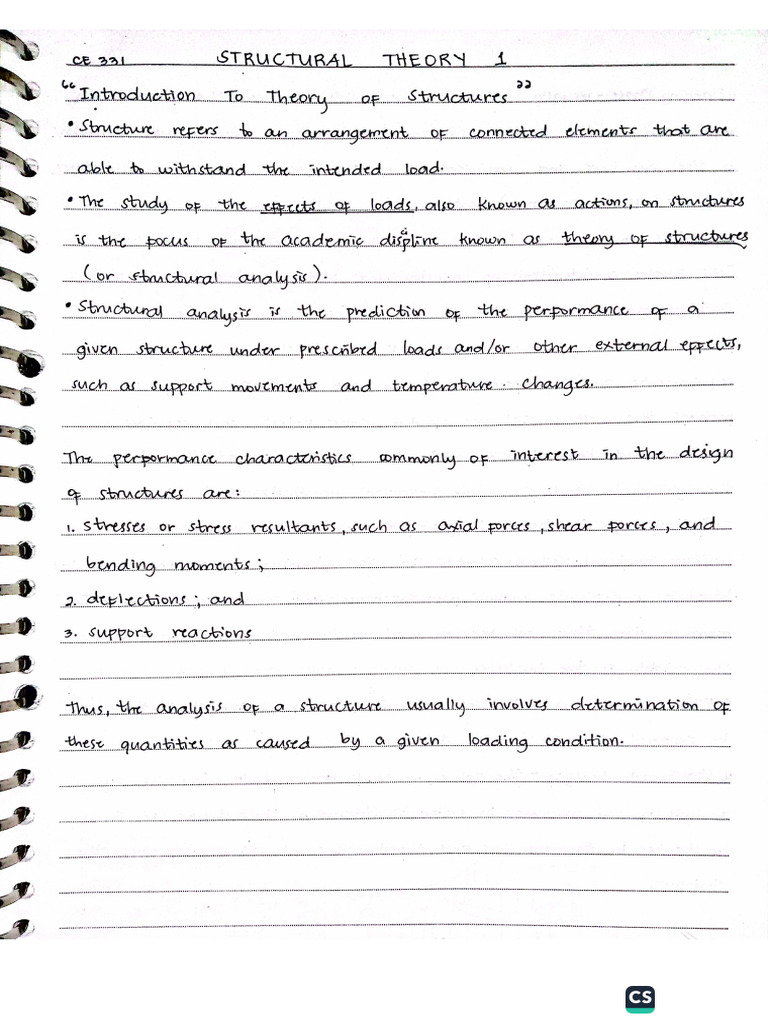 CE 331 STRUCTURAL THEORY 1
"Introduction To Theory of Structures"
• Structure refers to an arrangement of connected elements that are
able to withstand the intended load.
• The study of the effects of loads, also known as actions, on structures
is the focus of the academic discipline known as theory of structures
(or structural analysis).
• Structural analysis is the prediction of the performance of a
given structure under prescribed loads and/or other external effects,
such as support movements and temperature changes.
The performance characteristics commonly of interest in the design
of structures are:
1. stresses or stress resultants, such as axial forces, shear forces, and
bending moments;
2. deflections; and
3. support reactions
Thus, the analysis of a structure usually involves determination of
these quantities as caused by a given loading condition.
CS